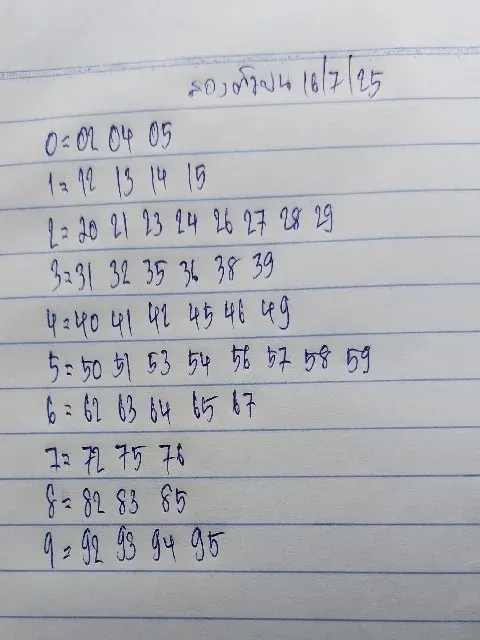 สองตัวบน 16/7/25
0=02 04 05
1=12 13 14 15
2=20 21 23 24 26 27 28 29
3=31 32 35 36 38 39
4=40 41 42 45 46 49
5=50 51 53 54 56 57 58 59
6=62 63 64 65 67
7=72 75 76
8=82 83 85
9=92 93 94 95